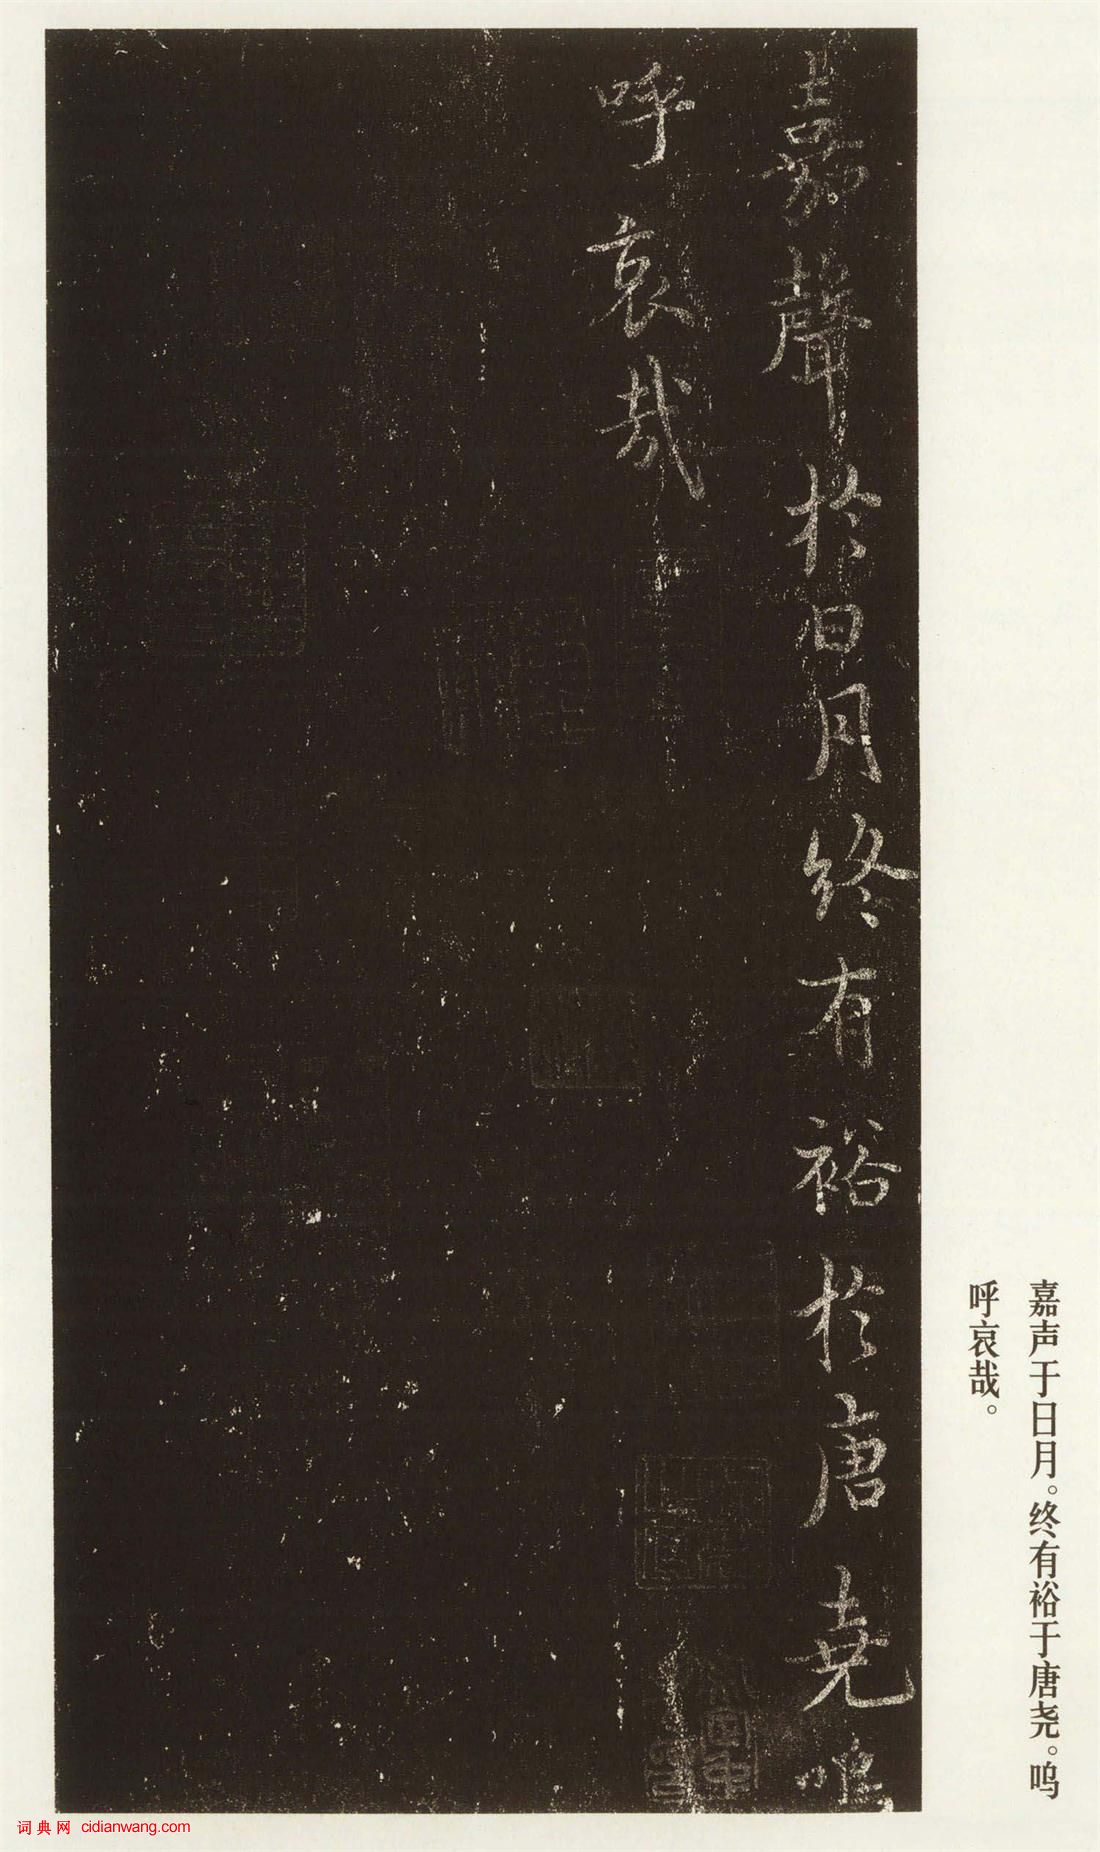 嘉聲於日月終有裕於唐堯嗚
呼哀哉
嘉声于日月。终有裕于唐尧。呜
呼哀哉。
词典网 cidianwang.com